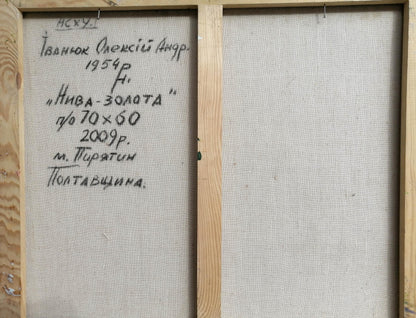 НСХУ.
Іванюк Олексій Андр.
1954р
н.
„Нива-золота"
п/о 70×60
2009р.
м. Пирятин
Полтавщина.